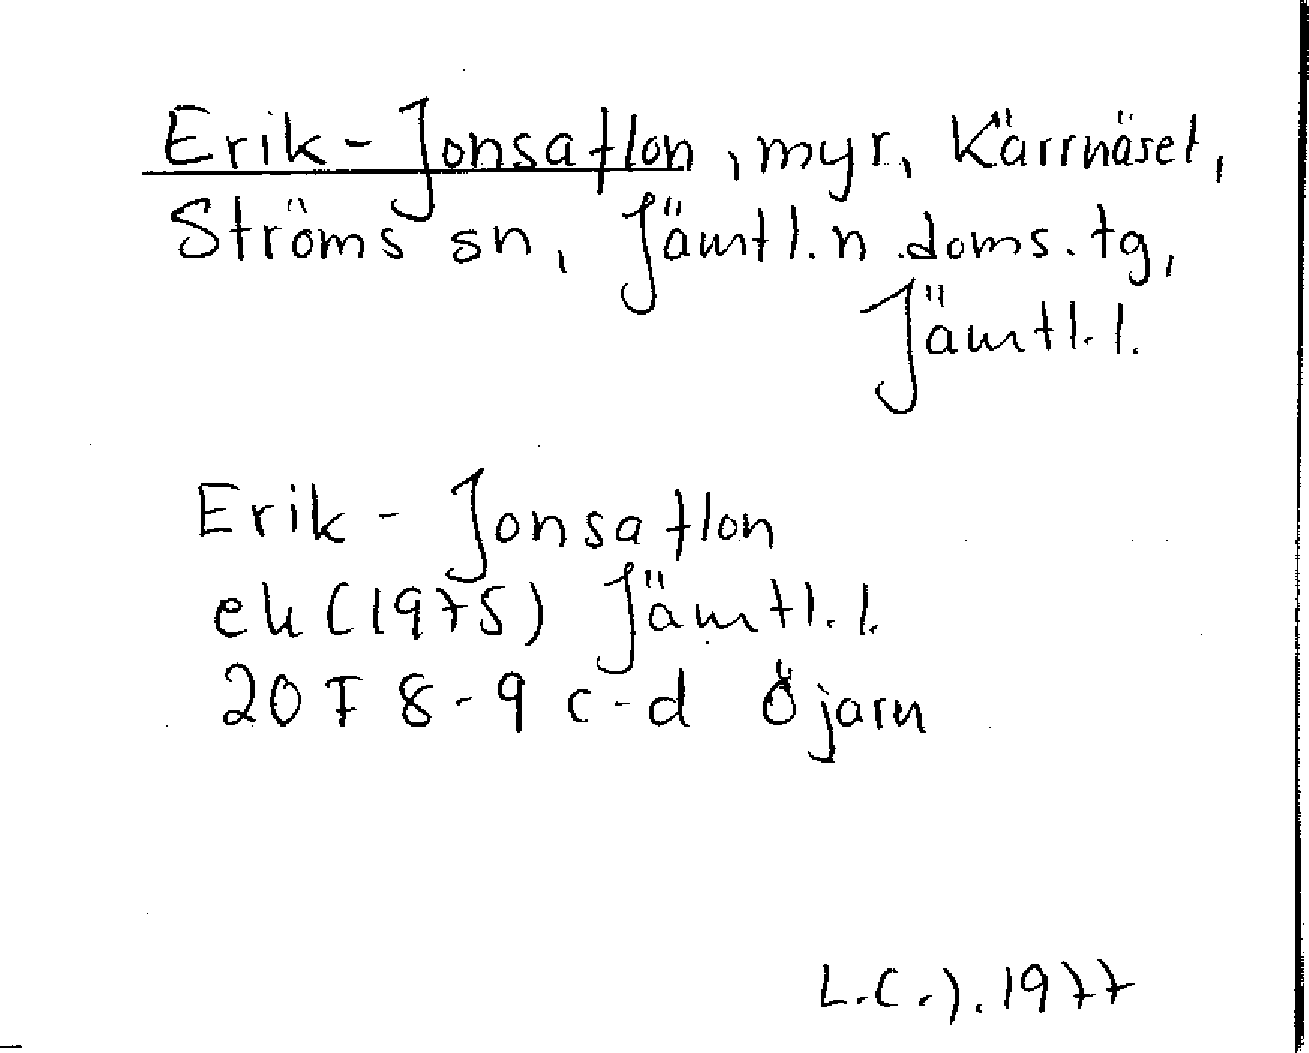 Erik-Jonsaflon, myr, Kärrnäset,
Ströms sn, Jämtl. n. doms. tg,
Jämtl. l.
Erik-Jonsaflon
ek (1975) Jämtl. l.
20 F 8-9 c-d Öjarn
L.C.J. 1977